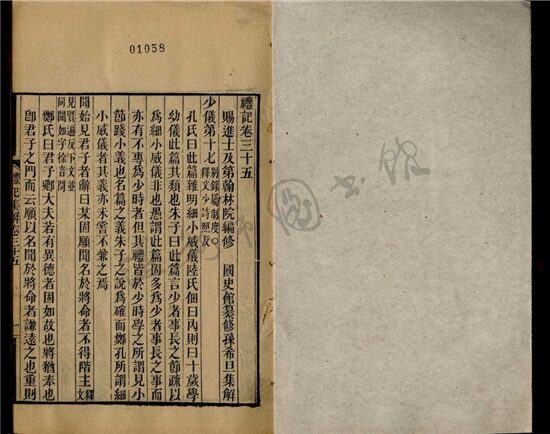 01058
禮記卷三十五
賜進士及第翰林院編修 國史館纂修孫希旦集解
少儀第十七 別錄屬制度○釋文少詩照反
孔氏曰此篇雜明細小威儀陸氏佃曰內則曰十歲學
幼儀此篇其類也朱子曰此篇言少者事長之節疏以
為細小威儀非也愚謂此篇固多為少者事長之事而
亦有不專為少時者但其禮皆於少時學之所謂見小
節踐小義也名篇之義朱子之說為確而鄭孔所謂細
小威儀者其義亦未嘗不兼之焉
聞始見君子者辭曰某固願聞名於將命者不得階主 釋文
見賢遍反下文並同聞如字徐音問
鄭氏曰君子卿大夫若有異德者固如故也將猶奉也
卽君子之門而云願以名聞於將命者謙遠之也重則
禮記集解卷三十五
一
書館